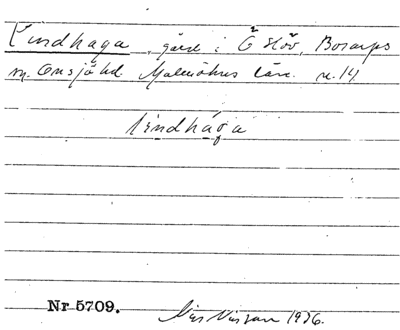 Lindhaga, gård i Ö Höö, Bosarps
sn. Onsjö hd. Malmöhus län. n. 14
lindhága
Nr 5709.
1936.